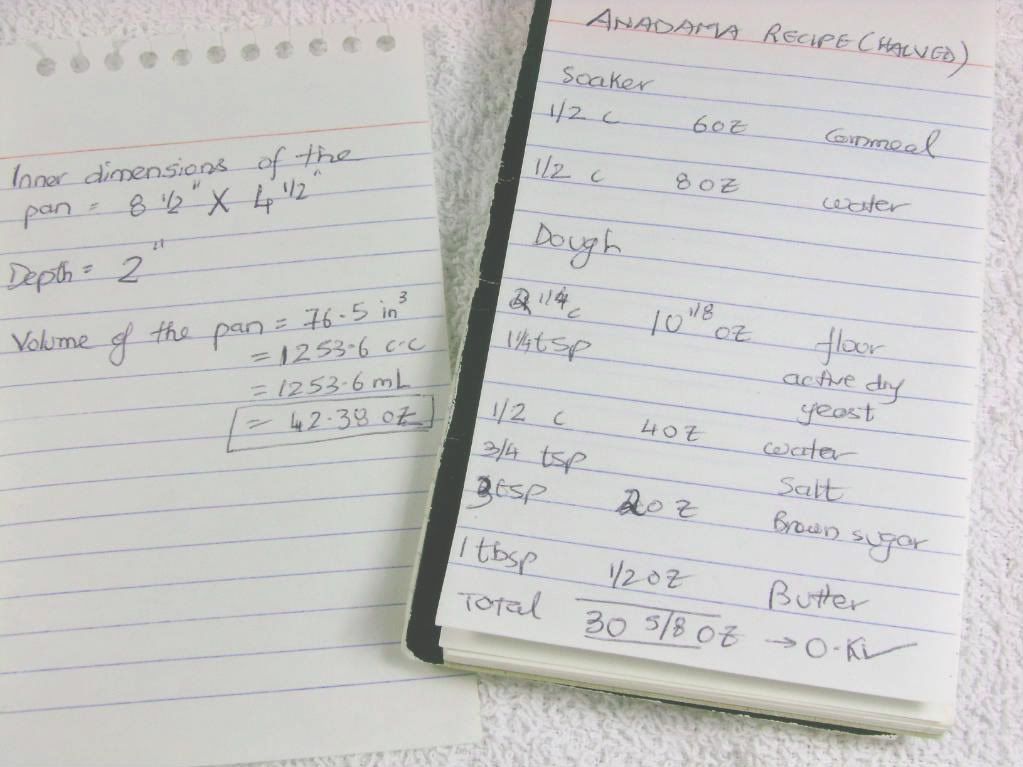 Inner dimensions of the
pan = 8 1/2" X 4 1/2"
Depth = 2"
Volume of the pan = 76.5 in³
= 1253.6 c.c
= 1253.6 mL
= 42.38 oz
ANADAMA RECIPE (HALVED)
Soaker
1/2 c 6oz Cornmeal
1/2 c 8oz water
Dough
2 1/4 c 10 1/8 oz floor
1 1/4 tsp active dry
yeast
1/2 c 4oz water
3/4 tsp Salt
3tsp 2oz Brown sugar
1 tbsp 1/2 oz Butter
Total 30 5/8 oz → O.K✓